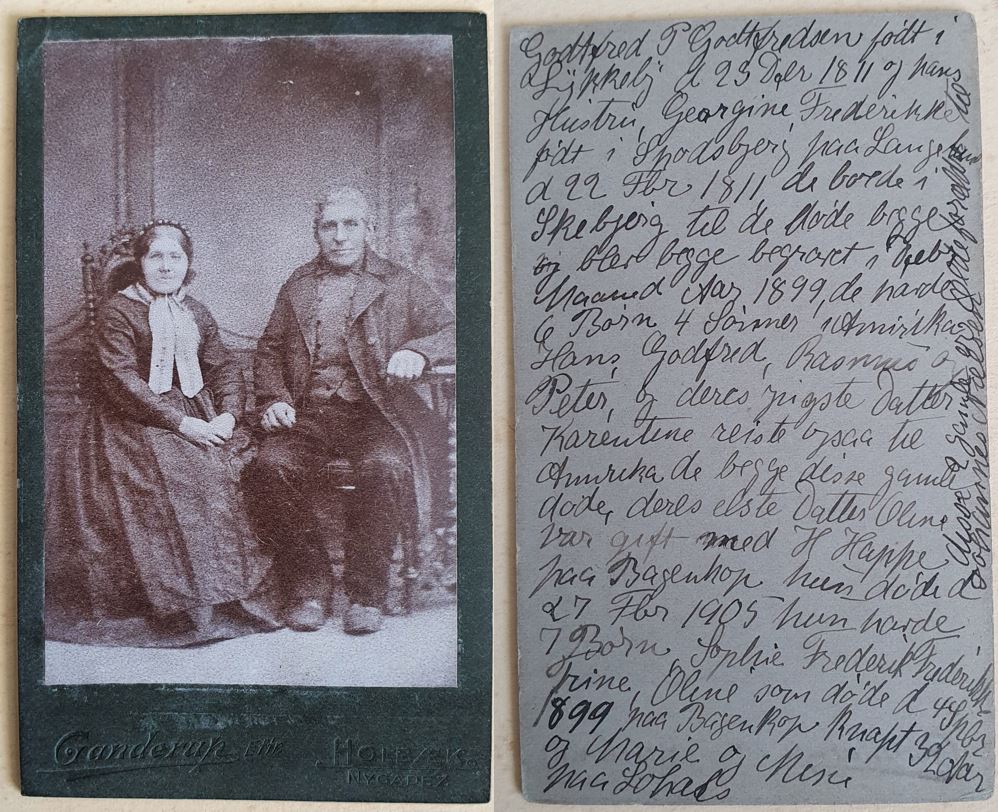 Ganderup Eftf.
HOLBÆK.
NYGADE 2
Godtfred P Godtfredsen født i
Lykkeby d 25 Dcbr 1811 og hans
Hustru, Georgine, Frederikke
født i Spodsbjerg paa Langeland
d 22 Fbr 1811 de boede i
Skebjerg til de døde begge
og blev begge begravet i Debr
Maaned Aar 1899, de havde
6 Børn 4 Sønner i Amirika
Hans, Godtfred, Rasmus o
Peter, og deres yngste Datter
Karentine reiste ogsaa til
Amirika de begge disse gamle
døde, deres elste Datter Oline
var gift med H Happe
paa Bagenkop hun døde d
27 Fbr 1905 hun havde
7 Børn Sophie Frederik Frederikke
Trine, Oline som døde d 4
1899 paa Bagenkop knapt 32 Aar
og Marie og
paa Lohals
disse gamle
Johannes